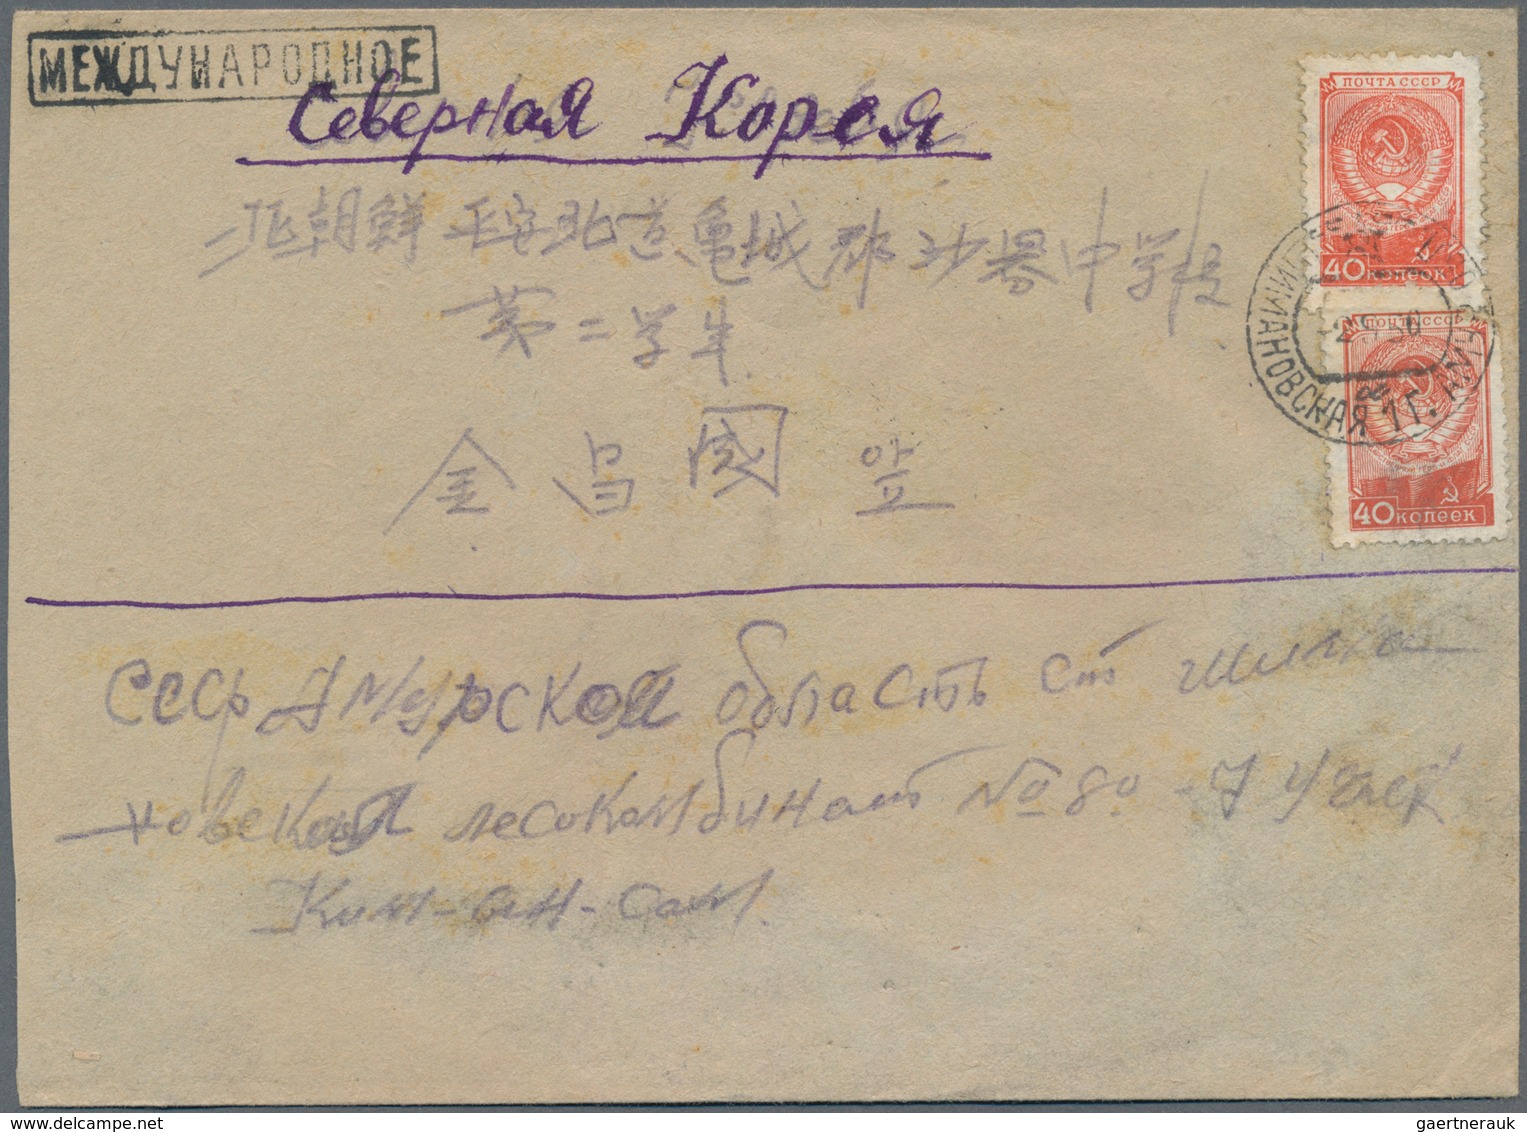 МЕЖДУНАРОДНОЕ
Северная Корея
北朝鮮 平安北道 亀城郡 沙器中学校
第二学年
金昌國 앞
ПОЧТА СССР
40 КОПЕЕК
ПОЧТА СССР
40 КОПЕЕК
ШИМАНОВСКАЯ
СССР Амурской область ст шима
новская лесокомбинат № 80 - 7 участ
Ким-ан-сам.
gaertnerauk